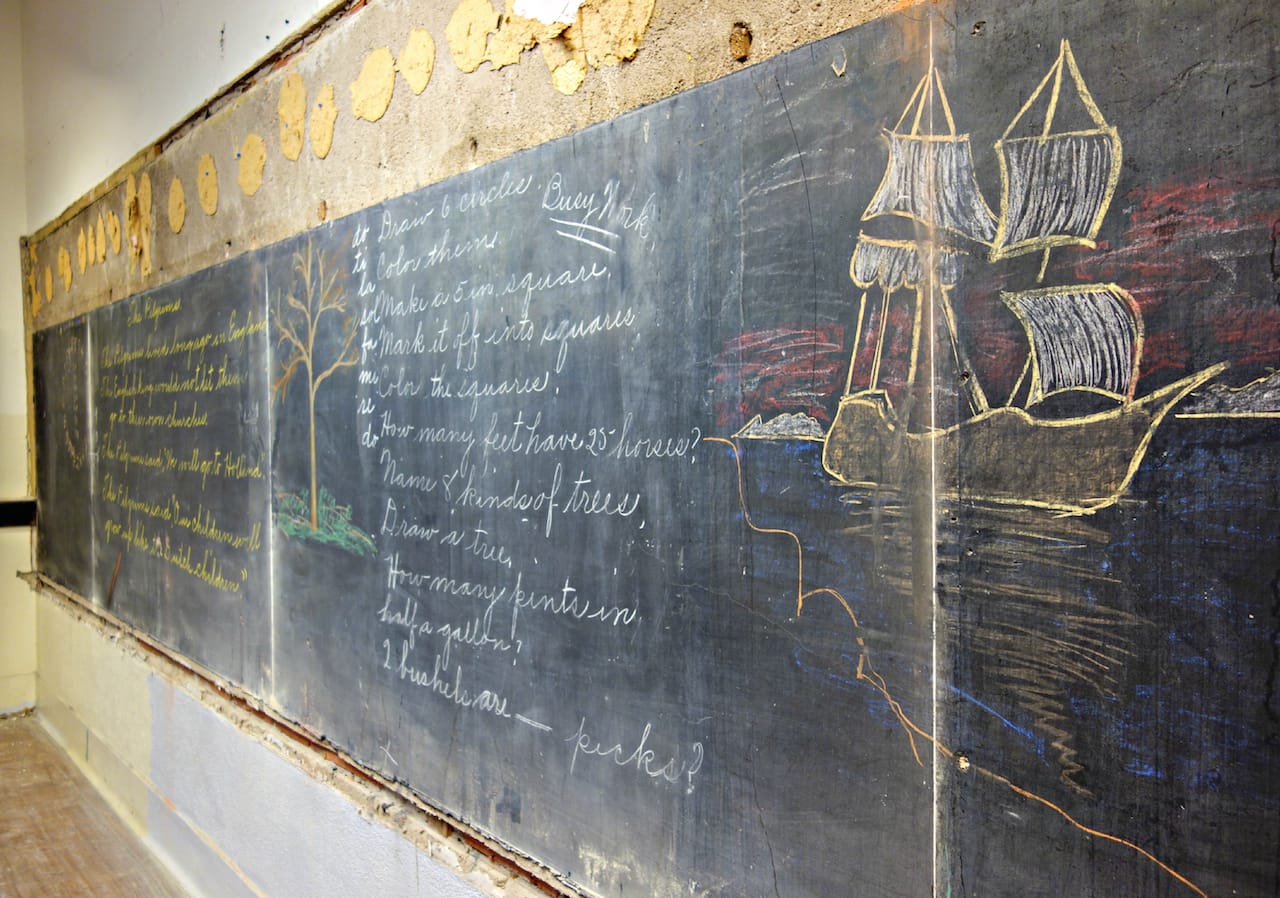 The Pilgrims
The Pilgrims lived long ago in England
The English king would not let them
go to their own churches.
The Pilgrims said, "We will go to Holland."
The Pilgrims said "Our children will
grow up like the Dutch children"
do
ti
la
sol
fa
mi
re
do
Busy Work,
Draw 6 circles.
Color them.
Make a 5 in. square.
Mark it off into squares
Color the squares.
How many feet have 25 horses?
Name 8 kinds of trees,
Draw a tree.
How many pints in
half a gallon?
2 bushels are — pecks?